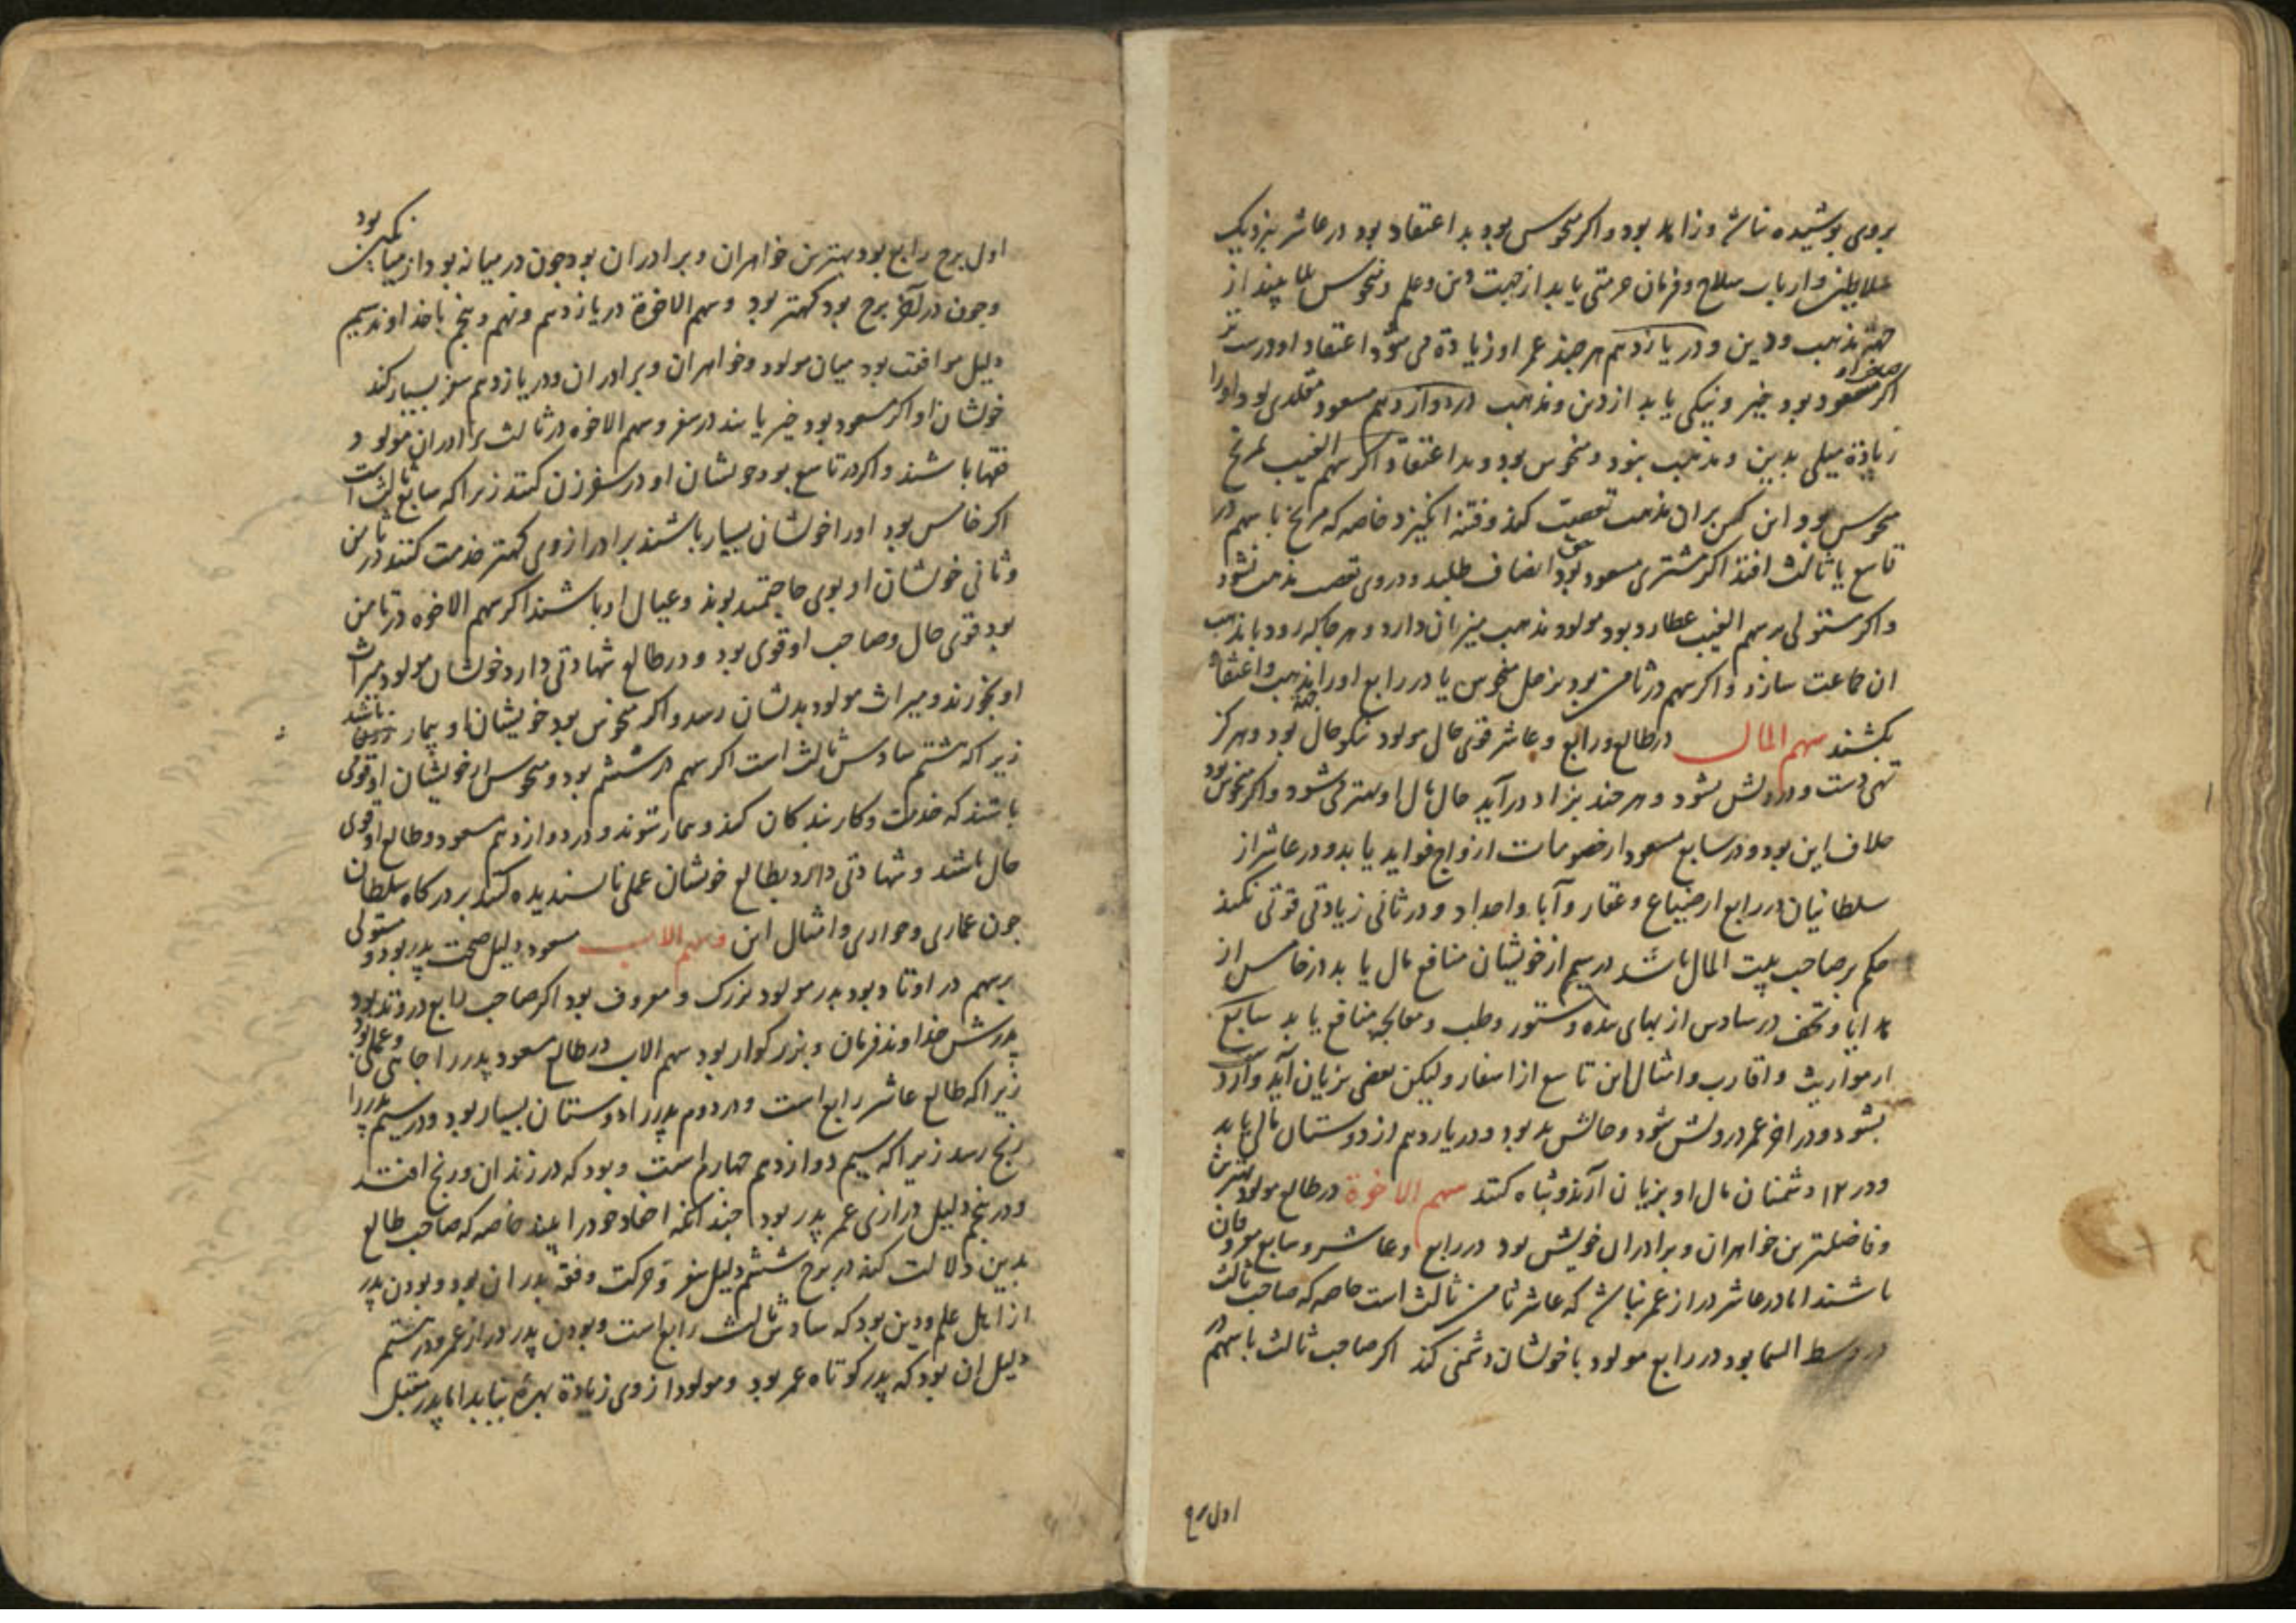 بروی پوشیده نباشد و زاهد بود و اکر منحوس بود بد اعتقاد بود در عاشر بنزدیک
سلاطین و ارباب سلاح و فرمان حرمتی یابد از جهت دین و علم و منحوس بلا بیند از
جهت مذهب و دین و در یازدهم هر جند عمر او زیادة می شود اعتقاد او درست تر
اکر مسعود بود خیر و نیکی یابد از دین و مذهب در دوازدهم مسعود مقلدی بود و او را
زیادة میلی بدین و مذهب نبود و منحوس بود و بد اعتقاد اکر سهم الغیب بمریخ
منحوس بود این کس بران مذهب تعصب کند و فتنه انکیزد خاصه که مریخ با سهم در
تاسع یا ثالث افتد اکر مشتری مسعود بود انصاف طلبد و در وی تعصب مذهب نبود
واکر مستولی بر سهم الغیب عطارد بود مولود مذهب میزبان دارد و هر جا که رود با مذهب
ان جماعت سازد و اکر سهم در ثامن بود بزحل منحوس یا در رابع او را مذهب و اعتقاد
بکشند سهم المال در طالع و رابع و عاشر قوی حال مولود نیکو حال بود و هرکز
تهی دست و درویش نشود و هر جند بزاد درآید حال مال او بهتر می شود و اکر منحوس بود
خلاف این بود و در سابع مسعود از خصومات ازواج فواید یابد و در عاشر از
سلطانیان در رابع از ضیاع و عقار و آبا و اجداد و در ثانی زیادتی قوتی نکند
حکم بر صاحب بیت المال باشد در سیم از خویشان منافع مال یابد در خامس از
هدایا و تحف در سادس از بهای بنده و ستور و طب و معالجه منافع یابد سابع
از مواریث و اقارب و امثال این تاسع از اسفار و لیکن بعضی بزیان آید و آرد
بشود و در اخر عمر درویش شود و حالش بد بود و در یازدهم از دوستان مالی یابد
و در ۱۲ دشمنان مال او بزیان آرند و تباه کنند سهم الاخوة در طالع مولود بهترین
و فاضلترین خواهران و برادران خویش بود در رابع و عاشر و سابع معروفان
باشند اما در عاشر دراز عمر نباشد که عاشر ثامن ثالث است خاصه که صاحب ثالث
در وسط السما بود در رابع مولود با خویشان دشمنی کند اکر صاحب ثالث با سهم در
اول برج
اول برج رابع بود بهترین خواهران و برادران بود جون در میانه بود از میانکین بود
وجون در آخر برج بود کهتر بود و سهم الاخوة در یازدهم و نهم و پنجم با خداوند سیم
دلیل موافقت بود میان مولود و خواهران و برادران و در یازدهم سفر بسیار کند
خویشان او اکر مسعود بود خیر یابند در سفر و سهم الاخوه در ثالث برادران مولود
فقها باشند و اکر در تاسع بود خویشان او در سفر زن کنند زیرا که سابع ثالث است
اکر خامس بود او را خویشان بسیار باشند برادر از وی کهتر خدمت کنند در ثامن
و ثانی خویشان او بوی حاجتمند بوند و عیال او باشند اکر سهم الاخوه در ثامن
بود قوی حال و صاحب او قوی بود و در طالع شهادتی دارد خویشان مولود میراث
او بخورند و میراث مولود بدیشان رسد و اکر منحوس بود خویشان او بیمار باشند
زیرا که هشتم سادس ثالث است اکر سهم در ششم بود و منحوس خویشان او قوی
باشند که خدمت و کار بندکان کنند و بیمار شوند و در دوازدهم مسعود و طالع او قوی
حال باشند و شهادتی دارد بطالع خویشان عملی ناپسندیده کنند بر درکاه سلطان
جون عماری و حواری و امثال این و سهم الاب مسعود دلیل صحت پدر بود و مستولی
بر سهم در اوتاد بود پدر مولود بزرک و معروف بود اکر صاحب رابع در وتد بود
پدرش خداوند فرمان و بزرکوار بود سهم الاب در طالع مسعود پدر را جاهی و عملی بود
زیرا که طالع عاشر رابع است و در دوم پدر را دوستان بسیار بود و در سیم پدر را
رنج رسد زیرا که سیم دوازدهم جهارم است و بود که در زندان و رنج افتد
و در پنجم دلیل درازی عمر پدر بود جندانکه احفاد خود را بیند خاصه که صاحب طالع
بدین دلالت کند در برج ششم دلیل سفر و حرکت و فقه پدران بود و بودن پدر
از اهل علم و دین بود که سادس ثالث رابع است و بودن پدر دراز عمر و در هشتم
دلیل ان بود که پدر کوتاه عمر بود و مولود از وی زیادة بهرة نیابد اما پدر مقبل